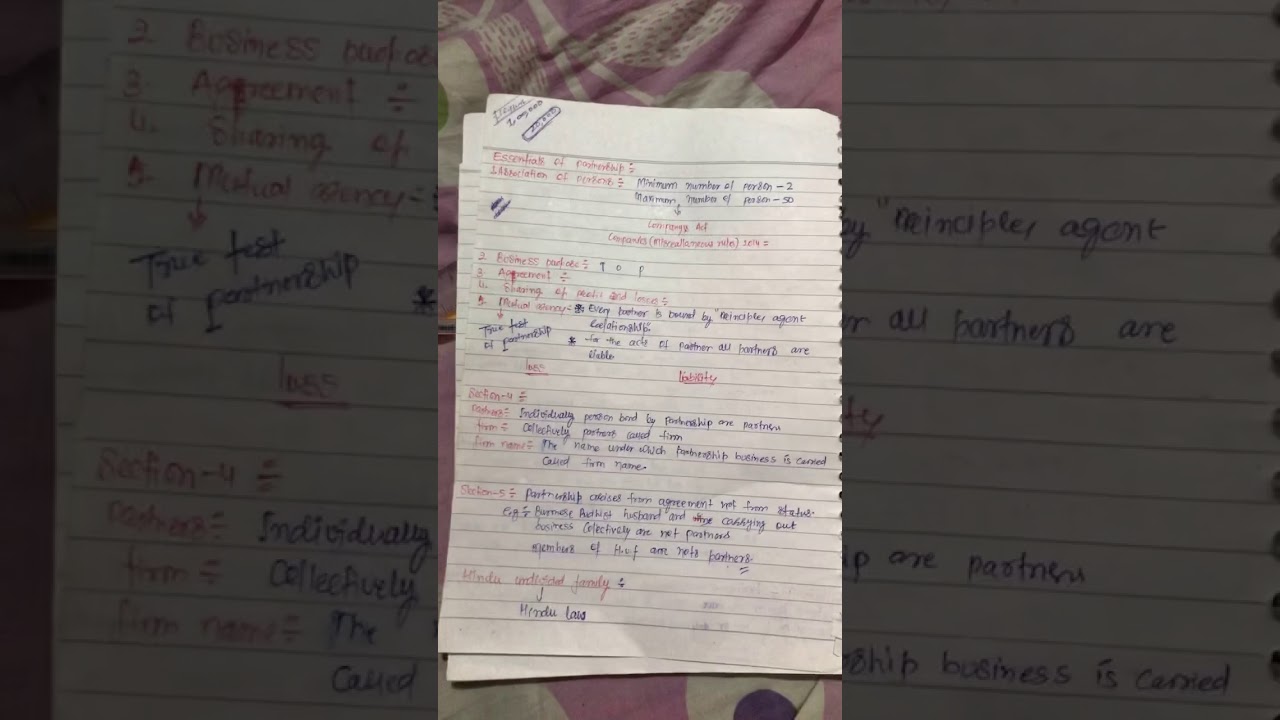 2,00,000
Essentials of partnership ÷
1. Association of persons ÷ Minimum number of person - 2
Maximum number of person - 50
Company's Act
Companies (Miscellaneous rules) 2014 =
2. Business purpose ÷ T O P
3. Agreement ÷
4. Sharing of profit and losses ÷
5. Mutual agency - * Every partner is bound by "Principles agent
Relationship.
True test
of partnership
* for the acts of partner all partners are
liable
liability
Section-4 ÷
Partners ÷ Individually person bond by partnership are partners
firm ÷ Collectively partners called firm
firm name ÷ The name under which partnership business is carried
Called firm name.
Section-5 ÷ Partnership arises from agreement not from status.
Eg ÷ Burmese Budhist husband and carrying out
business Collectively are not partners
Members of H.U.F are nots partners.
Hindu undivided family ÷
Hindu law